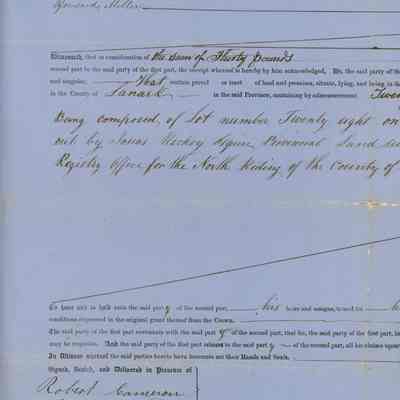 Edward Miller
Witnesseth, that in consideration of the sum of Thirty pounds
second part to the said party of the first part, the receipt whereof is hereby by him acknowledged, He, the said party of the
and singular, that certain parcel or tract of land and premises, situate, lying, and being in the
in the County of Lanark in the said Province, containing by admeasurement Twen
Being composed of Lot number Twenty eight on
out by Josias Richey Esquire, Provincial Land su
Registry Office for the North Riding of the County of
To have and to hold unto the said party of the second part, his heirs and assigns, to and for
conditions expressed in the original grant thereof from the Crown.
The said party of the first part covenants with the said party of the second part, that he, the said party of the first part, ha
may be requisite. And the said party of the first part releases to the said party of the second part, all his claims upon
In Witness whereof the said parties hereto have hereunto set their Hands and Seals.
Signed, Sealed, and Delivered in Presence of
Robert Cameron